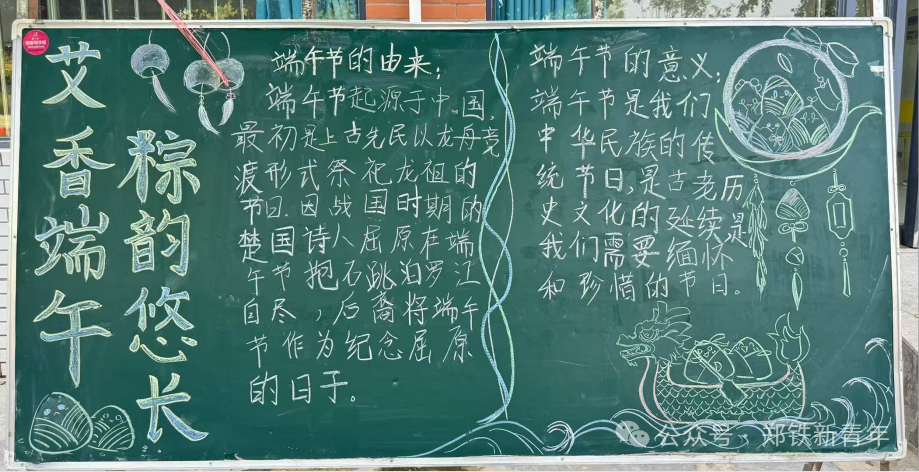 艾香端午
粽韵悠长
端午节的由来:
端午节起源于中国,
最初是上古先民以龙舟竞
渡形式祭祀龙祖的
节日.因战国时期的
楚国诗人屈原在端
午节抱石跳泊罗江
自尽,后裔将端午
节作为纪念屈原
的日于。
端午节的意义:
端午节是我们
中华民族的传
统节日,是古老历
史文化的延续是
我们需要缅怀
和珍惜的节日。
公众号·郑铁新青年